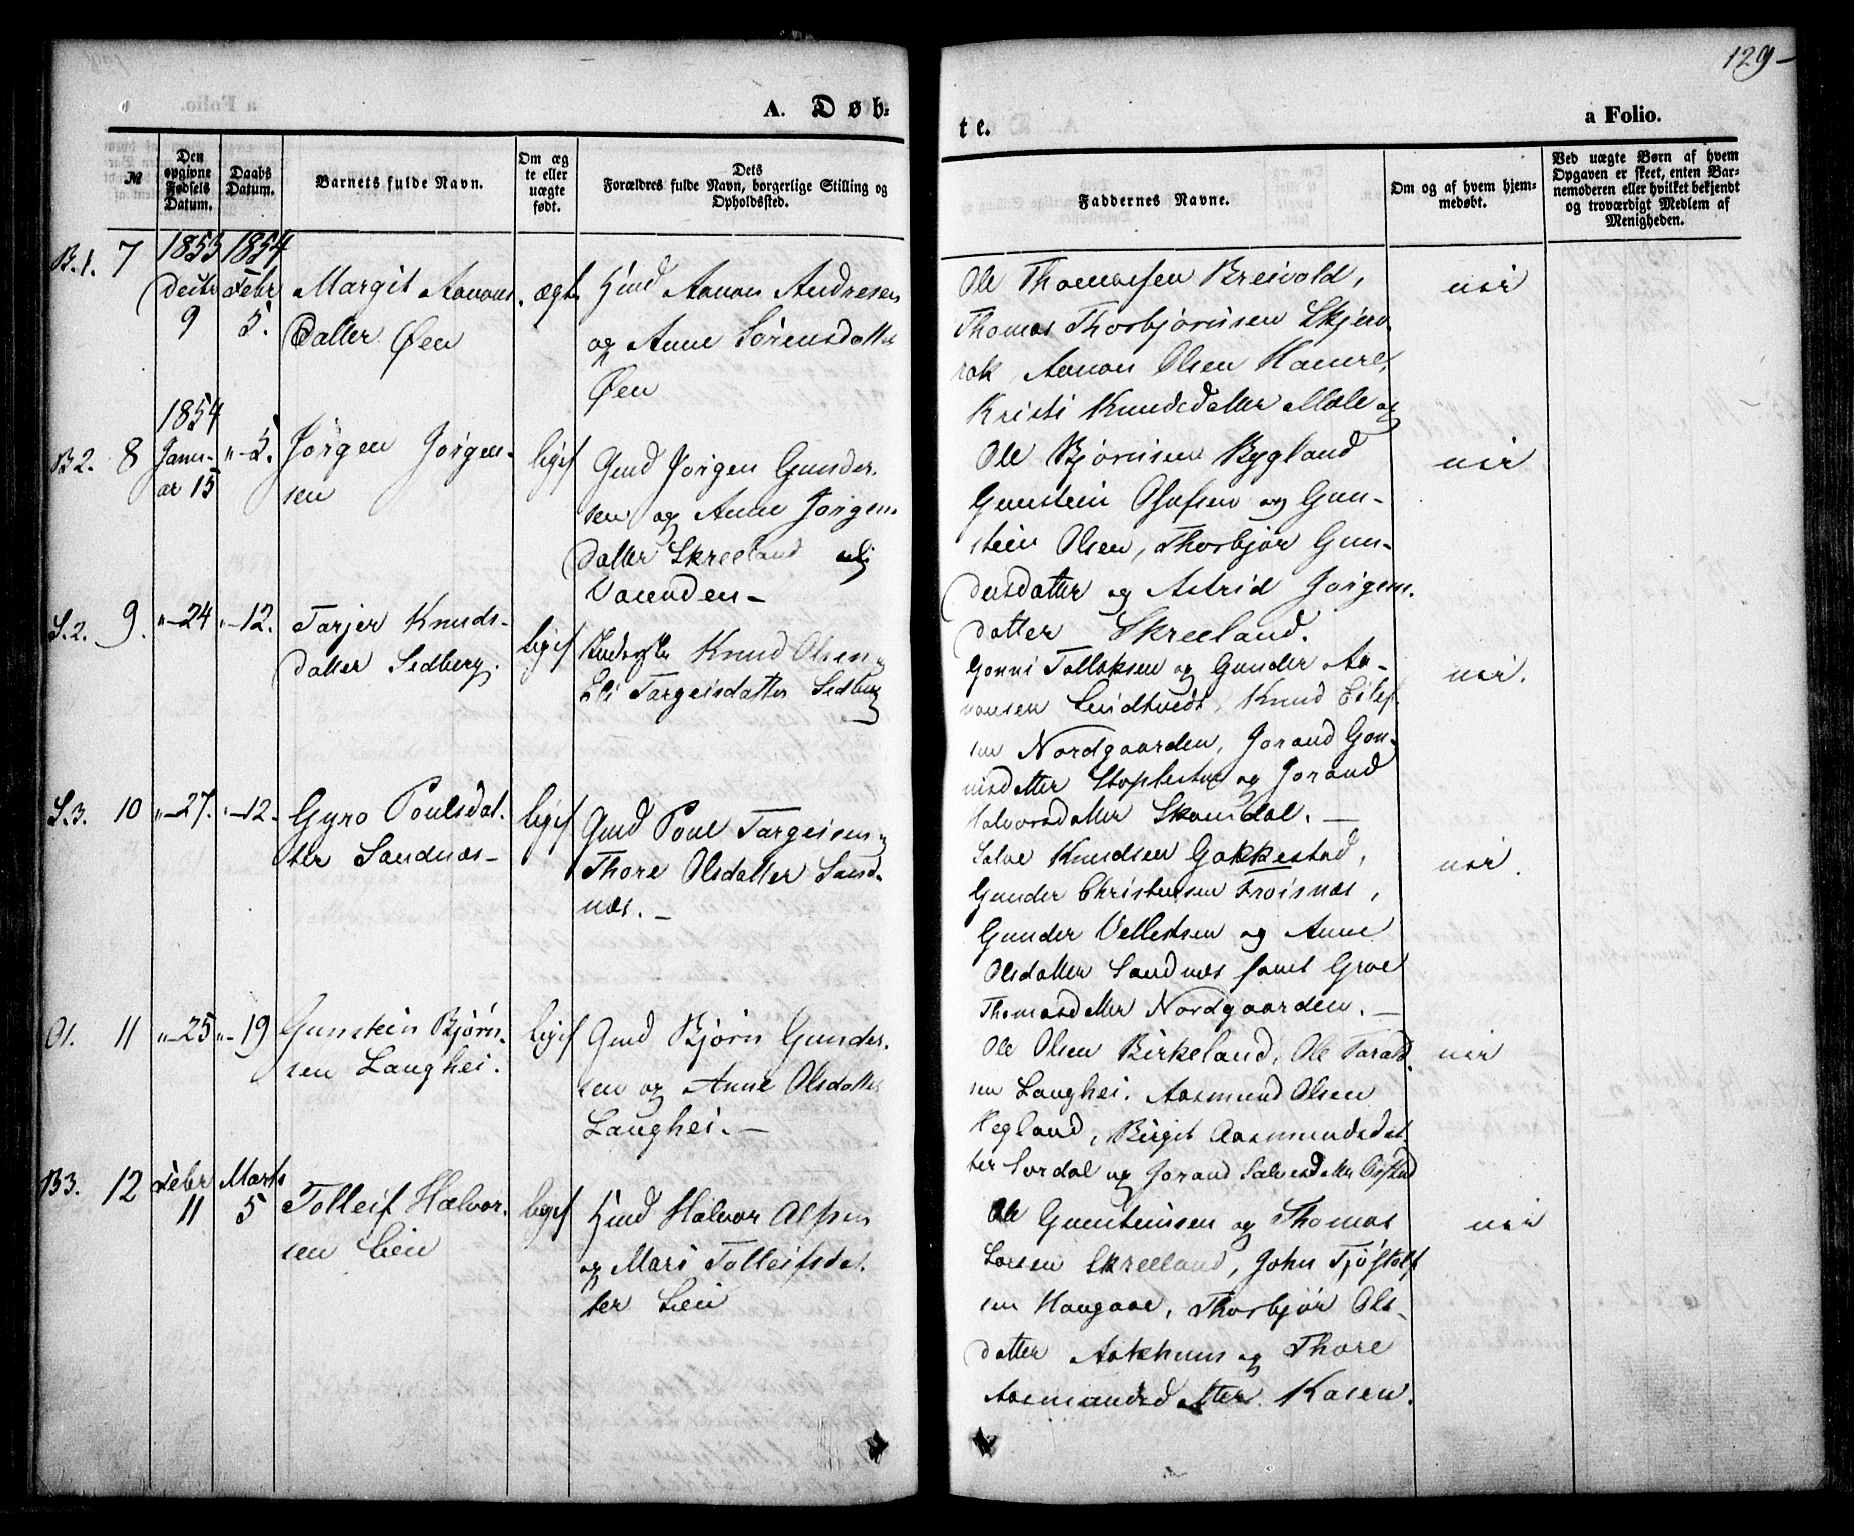 129-
A. Døb-
te.
a Folio.
№
Den opgivne Fødsels Datum.
Daabs Datum.
Barnets fulde Navn.
Om ægte eller uægte født.
Dets Forældres fulde Navn, borgerlige Stilling og Opholdssted.
Faddernes Navne.
Om og af hvem hjemmedøbt.
Ved uægte Børn af hvem Opgaven er skeet, enten Barnemoderen eller hvilket bekjendt og troværdigt Medlem af Menigheden.
B.1. 7
1853
Decbr
9
1854
Febr
5.
Margit Aanons-
datter Øen
ægte
Gmd Aanon Andresen
og Anne Sørensdatter
Øen
Ole Thomassen Breivold,
Thomas Thorbjørnsen Skjen-
rok, Aanon Olsen Hamre,
Kristi Knudsdatter Mole og
nei
B2. 8
1854
Janu-
ar 15
"-5.
Jørgen Jørgen-
sen
ligef
Gmd Jørgen Gunder-
sen og Anne Jørgens
datter Skreeland
Vaanden-
Ole Bjørnsen Bygland
Gunstein Olufsen og Gun-
stein Olsen, Thorbjør Gun-
dersdatter og Astrid Jørgens-
datter Skreeland.
nei
S.2. 9.
"-24
"-12.
Tarjer Knuds-
datter Sedberg.
ligef
Knud Olsen
Eli Targeisdatter Sedberg
Gonni Tollaksen og Gunder Aa-
nonsen Lindtvedt, Knud Eilef-
sen Nordgaarden, Jorand Gon-
nisdatter og Jorand
Halvorsdatter Skomdal.-
nei.
S.3. 10
"-27.
"-12.
Gyro Poulsdat-
ter Sandnæs-
ligef
Gmd Poul Targeisen
Thore Olsdatter Sand-
næs.-
Salve Knudsen Gakkestad,
Gunder Christensen Froisnæs,
Gunder Velletsen og Anne
Olsdatter Sandnæs samt Groe
Thomasdatter Nordgaarden.-
nei.
O1. 11
"-25
"-19
Gunstein Bjørn-
sen Langhei.
ligef
Gmd Bjørn Gunder-
sen og Anne Olsdatter
Langhei.-
Ole Olsen Birkeland, Ole Tarald-
sen Langhei. Aasmund Olsen
Hegland, Birgit Aasmundsdat-
ter Sordal og Jorand Salvesdatter
nei
B3. 12
Febr
11
Marts
5
Tolleif Halvor-
sen Lien
ligef
Gmd Halvor Alfsen
og Mari Tolleifsdat-
ter Lien
Ole Gunsteinsen og Thomas
Larsen Skreeland, John Tjøstolf
sen Haugaae, Thorbjør Ols-
datter Aakhuus og Thore
Aasmundsdatter Kasen.
nei